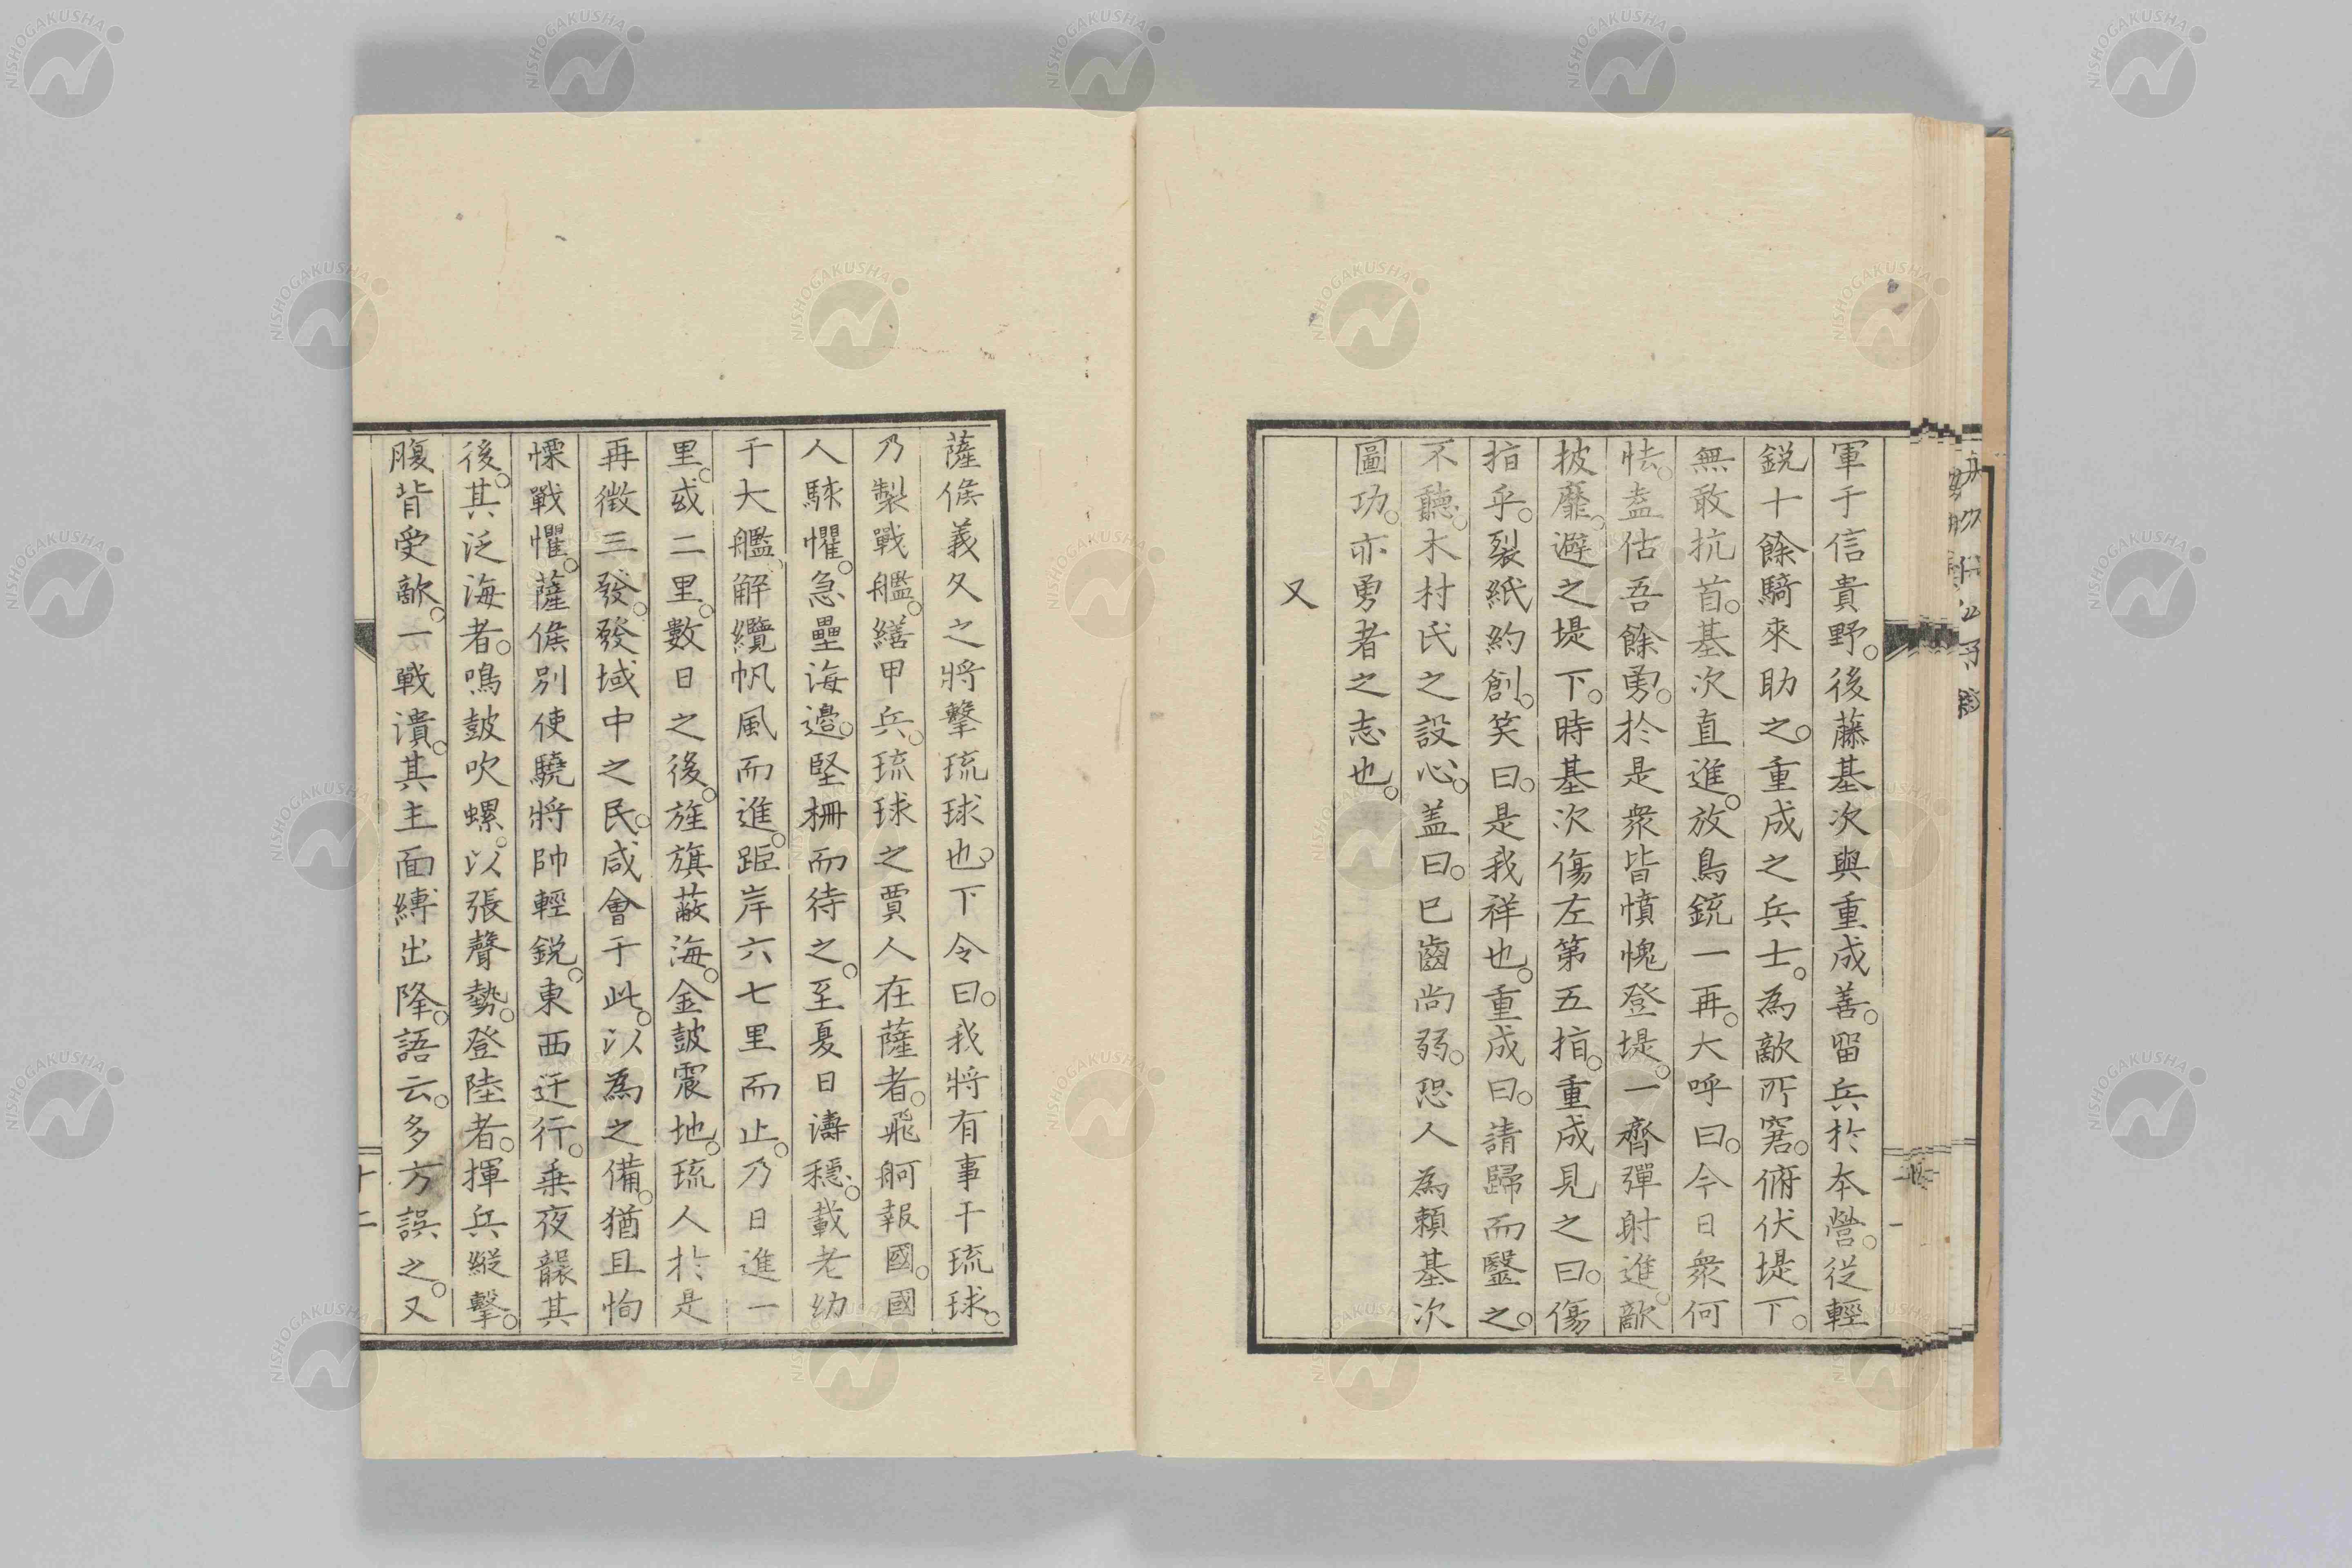 軍于信貴野。後藤基次與重成善。留兵於本營。從輕
鋭十餘騎來助之。重成之兵士。為敵所窘。俯伏堤下。
無敢抗首。基次直進。放鳥銃一再。大呼曰。今日衆何
怯。盍估吾餘勇。於是衆皆憤愧登堤。一齊彈射進。敵
披靡。避之堤下。時基次傷左第五指。重成見之曰。傷
指乎。裂紙約創。笑曰。是我祥也。重成曰。請歸而毉之。
不聽。木村氏之設心。盖曰。已齒尚弱。恐人為頼基次
圖功。亦勇者之志也。
又
薩侯義久之將擊琉球也。下令曰。我將有事于琉球。
乃製戰艦。繕甲兵。琉球之賈人在薩者。飛舸報國。國
人駭懼。急壘海邉。堅柵而待之。至夏日濤穩。載老幼
于大艦。解纜帆風而進。距岸六七里而止。乃日進一
里。或二里。數日之後。旌旗蔽海。金鼓震地。琉人於是
再徴三發。發域中之民。咸會于此。以為之備。猶且恂
慄戰懼。薩侯別使驍將帥輕鋭。東西迂行。乗夜襲其
後。其泛海者。鳴鼓吹螺。以張聲勢。登陸者。揮兵縱擊。
腹背受敵。一戰潰。其主面縛出降。語云。多方誤之。又
十二
NISHOGAKUSHA